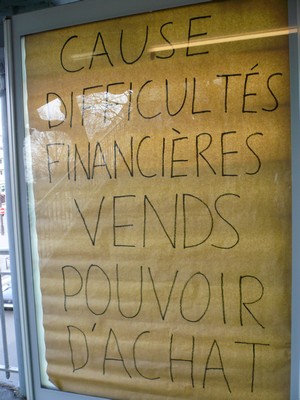 CAUSE
DIFFICULTÉS
FINANCIÈRES
VENDS
POUVOIR
D'ACHAT